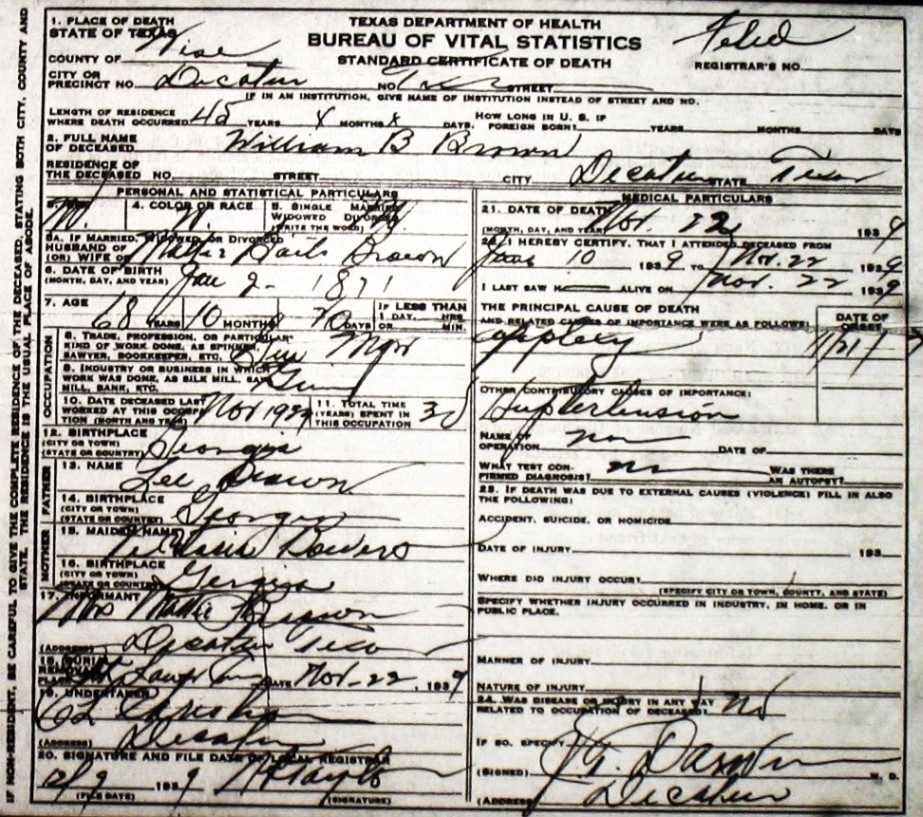 TEXAS DEPARTMENT OF HEALTH
BUREAU OF VITAL STATISTICS
STANDARD CERTIFICATE OF DEATH
Filed
REGISTRAR'S NO.
1. PLACE OF DEATH
STATE OF TEXAS
COUNTY OF Wise
CITY OR PRECINCT NO. Decatur NO. STREET
IF IN AN INSTITUTION, GIVE NAME OF INSTITUTION INSTEAD OF STREET AND NO.
LENGTH OF RESIDENCE WHERE DEATH OCCURRED 45 YEARS X MONTHS X DAYS. HOW LONG IN U. S. IF FOREIGN BORN? YEARS MONTHS DAYS
2. FULL NAME OF DECEASED William B Brown
RESIDENCE OF THE DECEASED NO. STREET CITY Decatur STATE Texas
PERSONAL AND STATISTICAL PARTICULARS
M. 4. COLOR OR RACE W. 5. SINGLE MARRIED WIDOWED DIVORCED (WRITE THE WORD) M
5A. IF MARRIED, WIDOWED OR DIVORCED
HUSBAND OF (OR) WIFE OF Brown
6. DATE OF BIRTH (MONTH, DAY, AND YEAR) Jan 2 - 1871
7. AGE 68 YEARS 10 MONTHS 20 DAYS IF LESS THAN 1 DAY, HRS. OR MIN.
OCCUPATION
8. TRADE, PROFESSION, OR PARTICULAR KIND OF WORK DONE, AS SPINNER, SAWYER, BOOKKEEPER, ETC. Mgr
9. INDUSTRY OR BUSINESS IN WHICH WORK WAS DONE, AS SILK MILL, SAW MILL, BANK, ETC. Gin
10. DATE DECEASED LAST WORKED AT THIS OCCUPATION (MONTH AND YEAR) Nov 1939 11. TOTAL TIME (YEARS) SPENT IN THIS OCCUPATION 30
12. BIRTHPLACE (CITY OR TOWN) (STATE OR COUNTRY) Georgia
FATHER
13. NAME Lee Brown
14. BIRTHPLACE (CITY OR TOWN) (STATE OR COUNTRY) Georgia
MOTHER
15. MAIDEN NAME Bowers
16. BIRTHPLACE (CITY OR TOWN) (STATE OR COUNTRY) Georgia
17. INFORMANT Mrs Mattie Brown
(ADDRESS) Decatur Texas
18. BURIAL REMOVAL PLACE DATE Nov-22, 1939
19. UNDERTAKER
(ADDRESS) Decatur
20. SIGNATURE AND FILE DATE OF LOCAL REGISTRAR
12/9 1939
(FILE DATE) (SIGNATURE)
MEDICAL PARTICULARS
21. DATE OF DEATH (MONTH, DAY, AND YEAR) Nov. 22 1939
22. I HEREBY CERTIFY, THAT I ATTENDED DECEASED FROM
10 1939 TO Nov. 22 1939
I LAST SAW H ALIVE ON Nov. 22 1939
THE PRINCIPAL CAUSE OF DEATH AND RELATED CAUSES OF IMPORTANCE WERE AS FOLLOWS:
DATE OF ONSET
Apoplexy 11/21/
OTHER CONTRIBUTORY CAUSES OF IMPORTANCE:
Hypertension
NAME OF OPERATION DATE OF
WHAT TEST CONFIRMED DIAGNOSIS? WAS THERE AN AUTOPSY?
23. IF DEATH WAS DUE TO EXTERNAL CAUSES (VIOLENCE) FILL IN ALSO THE FOLLOWING:
ACCIDENT, SUICIDE, OR HOMICIDE
DATE OF INJURY 193
WHERE DID INJURY OCCUR?
(SPECIFY CITY OR TOWN, COUNTY, AND STATE)
SPECIFY WHETHER INJURY OCCURRED IN INDUSTRY, IN HOME, OR IN PUBLIC PLACE.
MANNER OF INJURY
NATURE OF INJURY
24. WAS DISEASE OR INJURY IN ANY WAY RELATED TO OCCUPATION OF DECEASED? No
IF SO, SPECIFY
(SIGNED) M. D.
(ADDRESS) Decatur
IF NON-RESIDENT, BE CAREFUL TO GIVE THE COMPLETE RESIDENCE OF THE DECEASED, STATING BOTH CITY, COUNTY AND STATE. THE RESIDENCE IS THE USUAL PLACE OF ABODE.